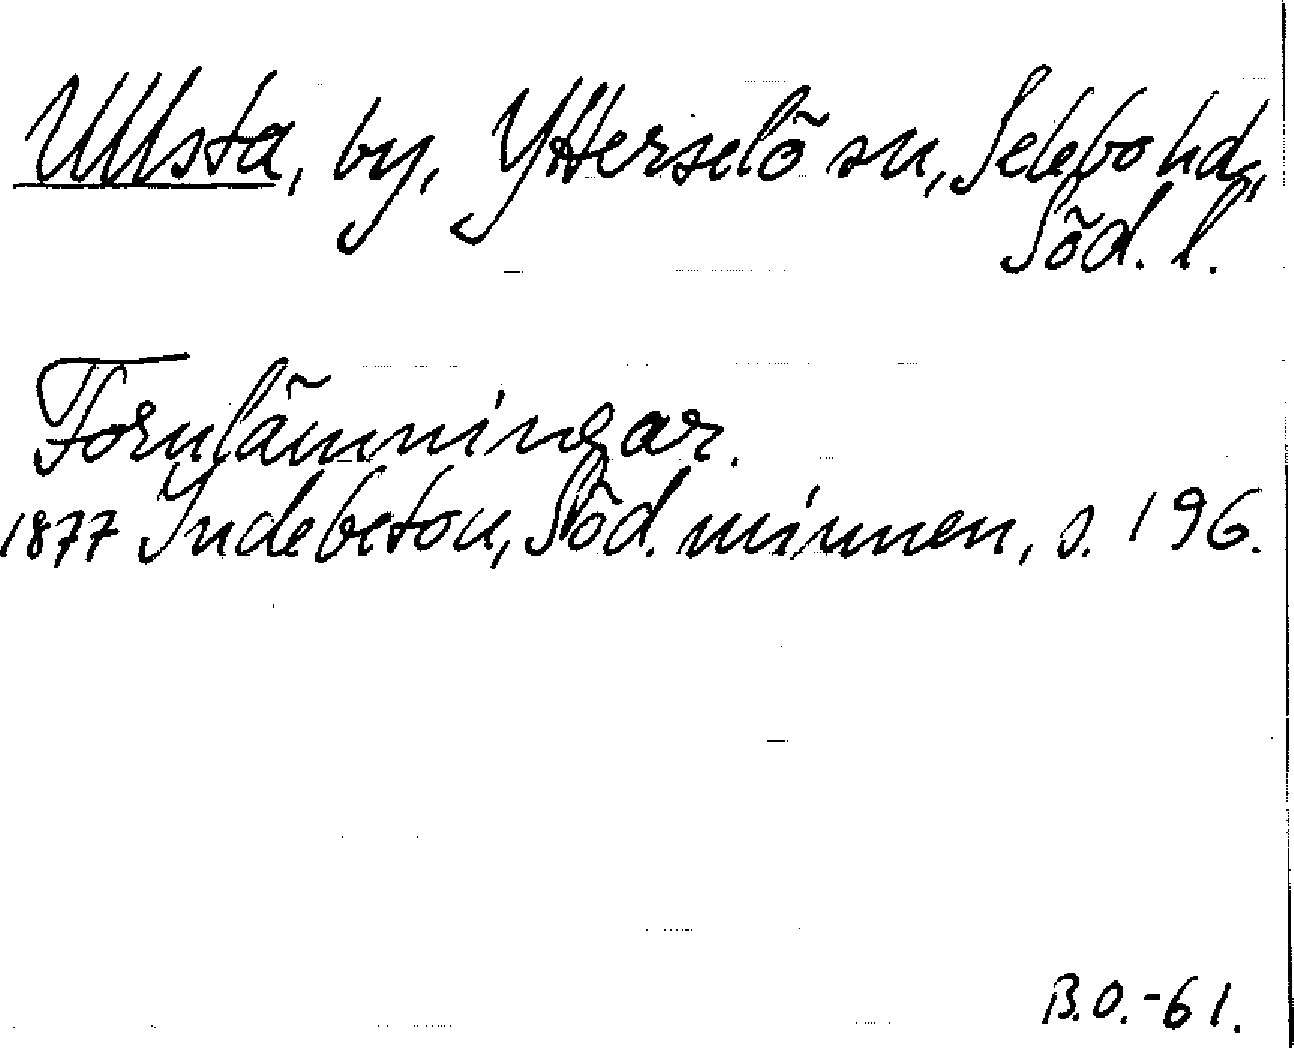 Ullsta, by, Ytterselö sn, Selebo hd,
Söd. l.
Fornlämningar.
1877 Indebetou, Söd. minnen, s. 196.
B.O.-61.